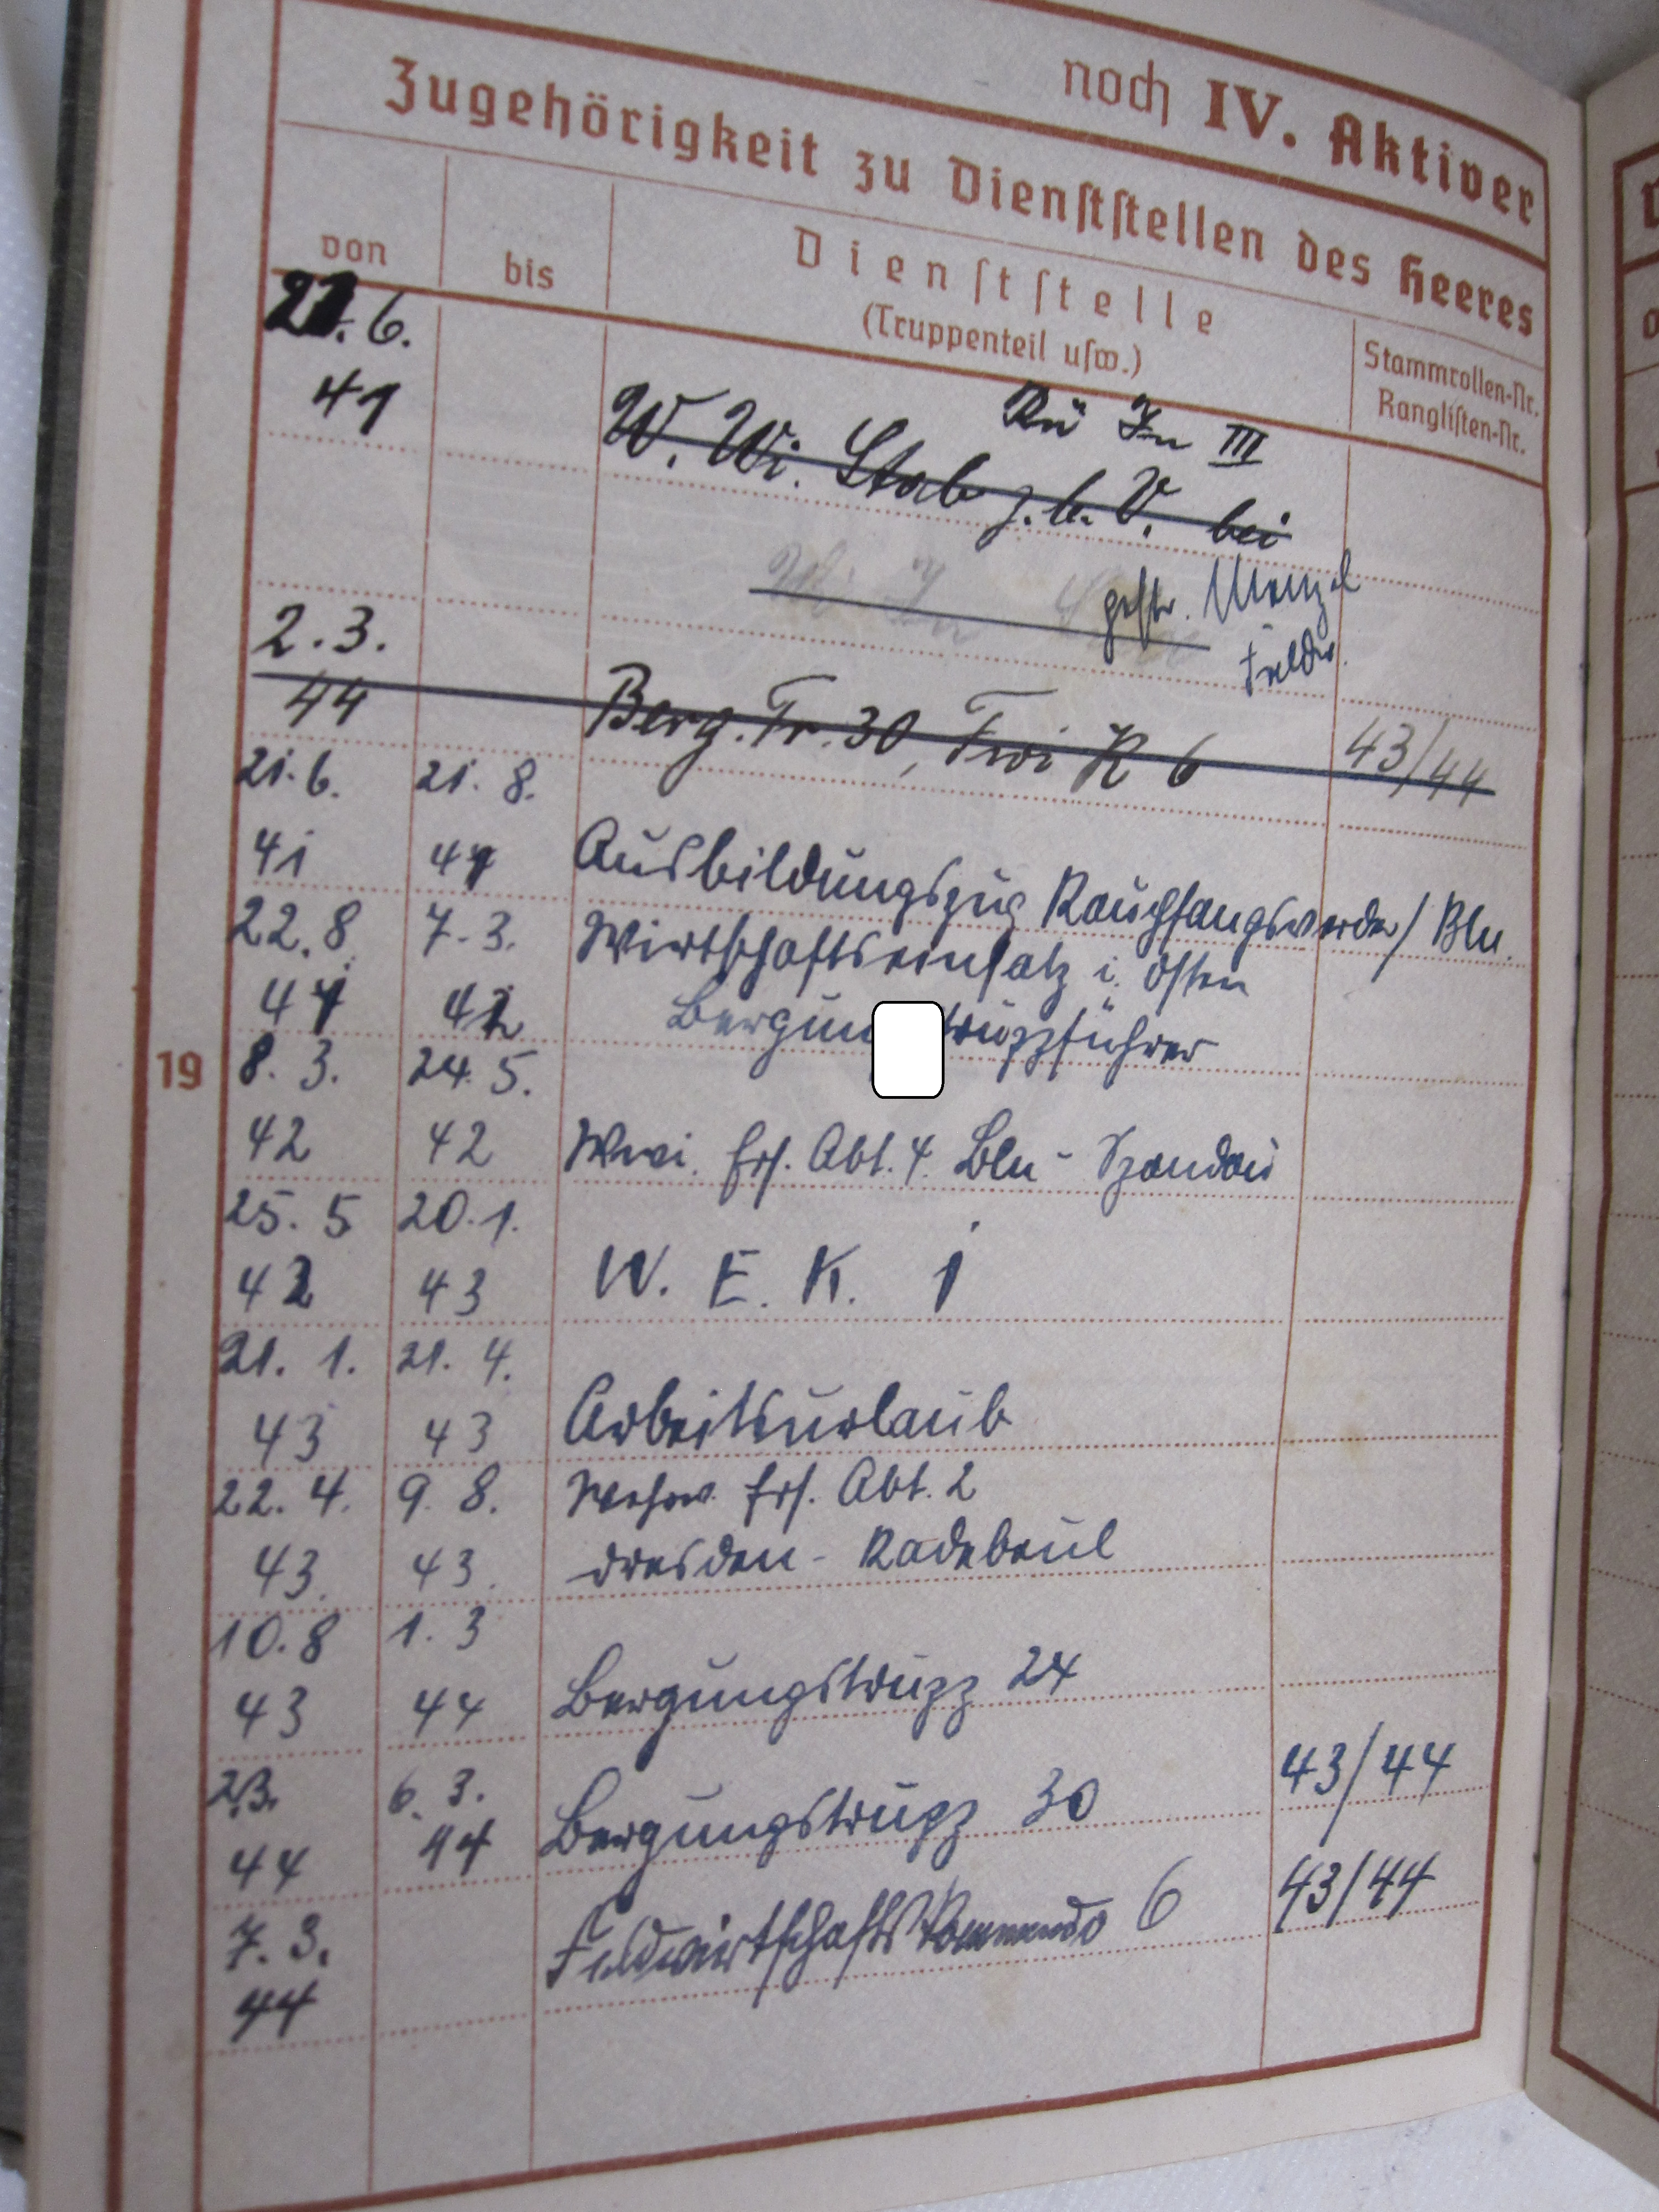 noch IV. Aktiver
Zugehörigkeit zu Dienststellen des Heeres
von bis Dienststelle
(Truppenteil usw.)
Stammrollen-Nr.
Ranglisten-Nr.
6.
41
Rü In III
W. Wi. Stab z.b.V. bei
gestr. Menzel
Feldw.
2.3.
44 Berg.Tr.30, Fwi K 6 43/44
21.6. 21.8.
41 41 Ausbildungszug Rauchfangswerder/Bln.
22.8. 7.3. Wirtschaftseinsatz i. Osten
41 42
19
8.3. 24.5.
42 42 Wwi. Ers. Abt. 4. Bln - Spandau
25.5 20.1.
42 43 W. E. K. 1
21.1. 21.4.
43 43 Arbeitsurlaub
22.4. 9.8. Ers. Abt. 2
43. 43. Dresden - Radebeul
10.8 1.3
43 44 Bergungstrupp 24
2.3. 6.3.
44 44 Bergungstrupp 30 43/44
7.3.
44 Feldwirtschaftskommando 6 43/44